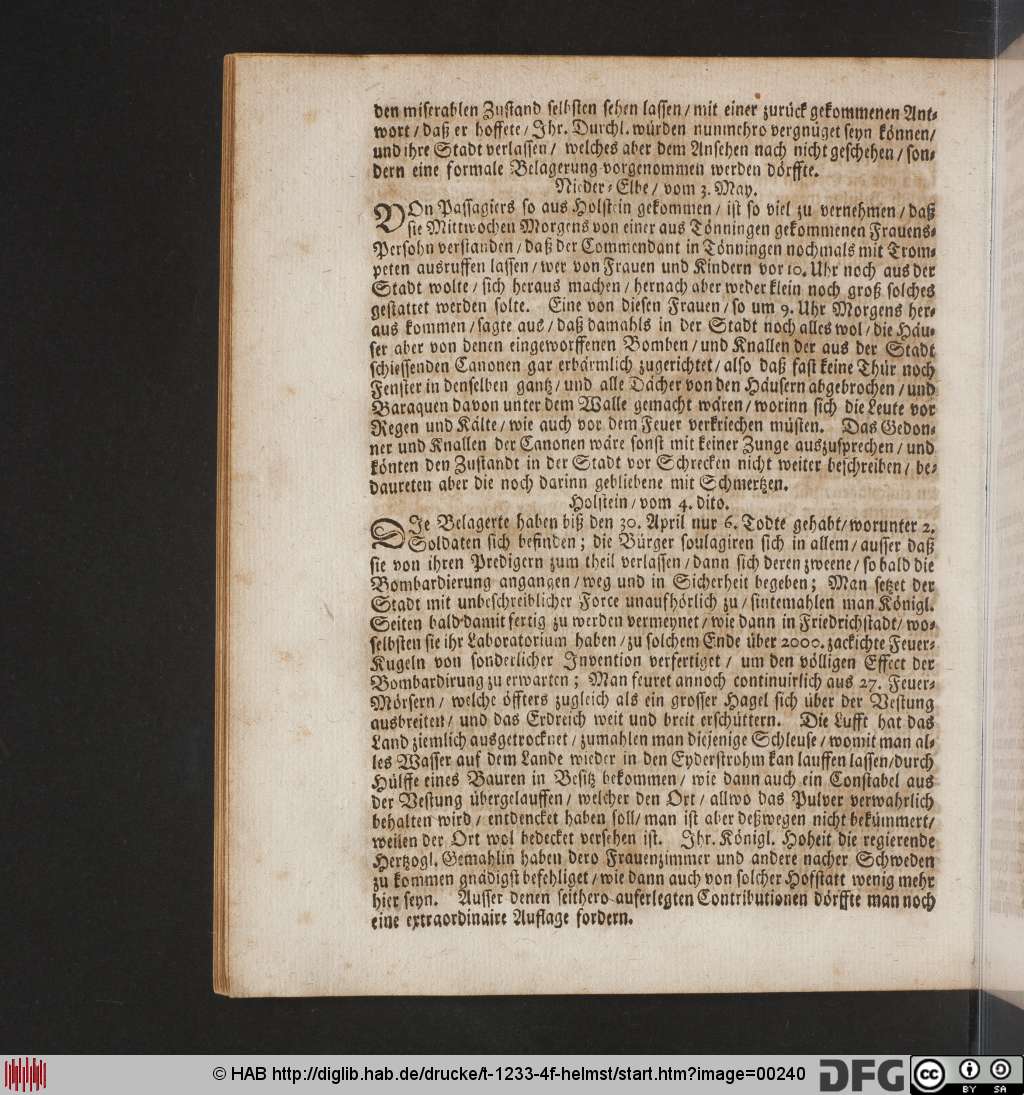 den miserablen Zustand selbsten sehen lassen / mit einer zurück gekommenen Ant-
wort / daß er hoffete / Ihr. Durchl. würden nunmehro vergnüget seyn können /
und ihre Stadt verlassen / welches aber dem Ansehen nach nicht geschehen / son-
dern eine formale Belagerung vorgenommen werden dörffte.
Nieder-Elbe / vom 3. May.
VOn Passagiers so aus Holstein gekommen / ist so viel zu vernehmen / daß
sie Mittwochen Morgens von einer aus Tönningen gekommenen Frauens-
Persohn verstanden / daß der Commendant in Tönningen nochmals mit Trom-
peten ausruffen lassen / wer von Frauen und Kindern vor 10. Uhr noch aus der
Stadt wolte / sich heraus machen / hernach aber weder klein noch groß solches
gestattet werden solte. Eine von diesen Frauen / so um 9. Uhr Morgens her-
aus kommen / sagte aus / daß damahls in der Stadt noch alles wol / die Häu-
ser aber von denen eingeworffenen Bomben / und Knallen der aus der Stadt
schiessenden Canonen gar erbärmlich zugerichtet / also daß fast keine Thür noch
Fenster in denselben gantz / und alle Dächer von den Häusern abgebrochen / und
Baraquen davon unter dem Walle gemacht wären / worinn sich die Leute vor
Regen und Kälte / wie auch vor dem Feuer verkriechen müsten. Das Gedon-
ner und Knallen der Canonen wäre sonst mit keiner Zunge auszusprechen / und
könten den Zustandt in der Stadt vor Schrecken nicht weiter beschreiben / be-
daureten aber die noch darinn gebliebene mit Schmertzen.
Holstein / vom 4. dito.
DIe Belagerte haben biß den 30. April nur 6. Todte gehabt / worunter 2.
Soldaten sich befinden; die Bürger soulagiren sich in allem / ausser daß
sie von ihren Predigern zum theil verlassen / dann sich deren zweene / so bald die
Bombardierung angangen / weg und in Sicherheit begeben; Man setzet der
Stadt mit unbeschreiblicher Force unaufhörlich zu / sintemahlen man Königl.
Seiten bald damit fertig zu werden vermeynet / wie dann in Friedrichstadt / wo-
selbsten sie ihr Laboratorium haben / zu solchem Ende über 2000. zackichte Feuer-
Kugeln von sonderlicher Invention verfertiget / um den völligen Effect der
Bombardirung zu erwarten; Man feuret annoch continuirlich aus 27. Feuer-
Mörsern / welche öffters zugleich als ein grosser Hagel sich über der Vestung
ausbreiten / und das Erdreich weit und breit erschüttern. Die Lufft hat das
Land ziemlich ausgetrocknet / zumahlen man diejenige Schleuse / womit man al-
les Wasser auf dem Lande wieder in den Eyderstrohm kan lauffen lassen / durch
Hülffe eines Bauren in Besitz bekommen / wie dann auch ein Constabel aus
der Vestung übergelauffen / welcher den Ort / allwo das Pulver verwahrlich
behalten wird / entdencket haben soll / man ist aber deßwegen nicht bekümmert /
weilen der Ort wol bedecket versehen ist. Ihr. Königl. Hoheit die regierende
Hertzogl. Gemahlin haben dero Frauenzimmer und andere nacher Schweden
zu kommen gnädigst befehliget / wie dann auch von solcher Hofstatt wenig mehr
hier seyn. Ausser denen seithero auferlegten Contributionen dörffte man noch
eine extraordinaire Auflage fordern.
© HAB http://diglib.hab.de/drucke/t-1233-4f-helmst/start.htm?image=00240
DFG
cc BY SA